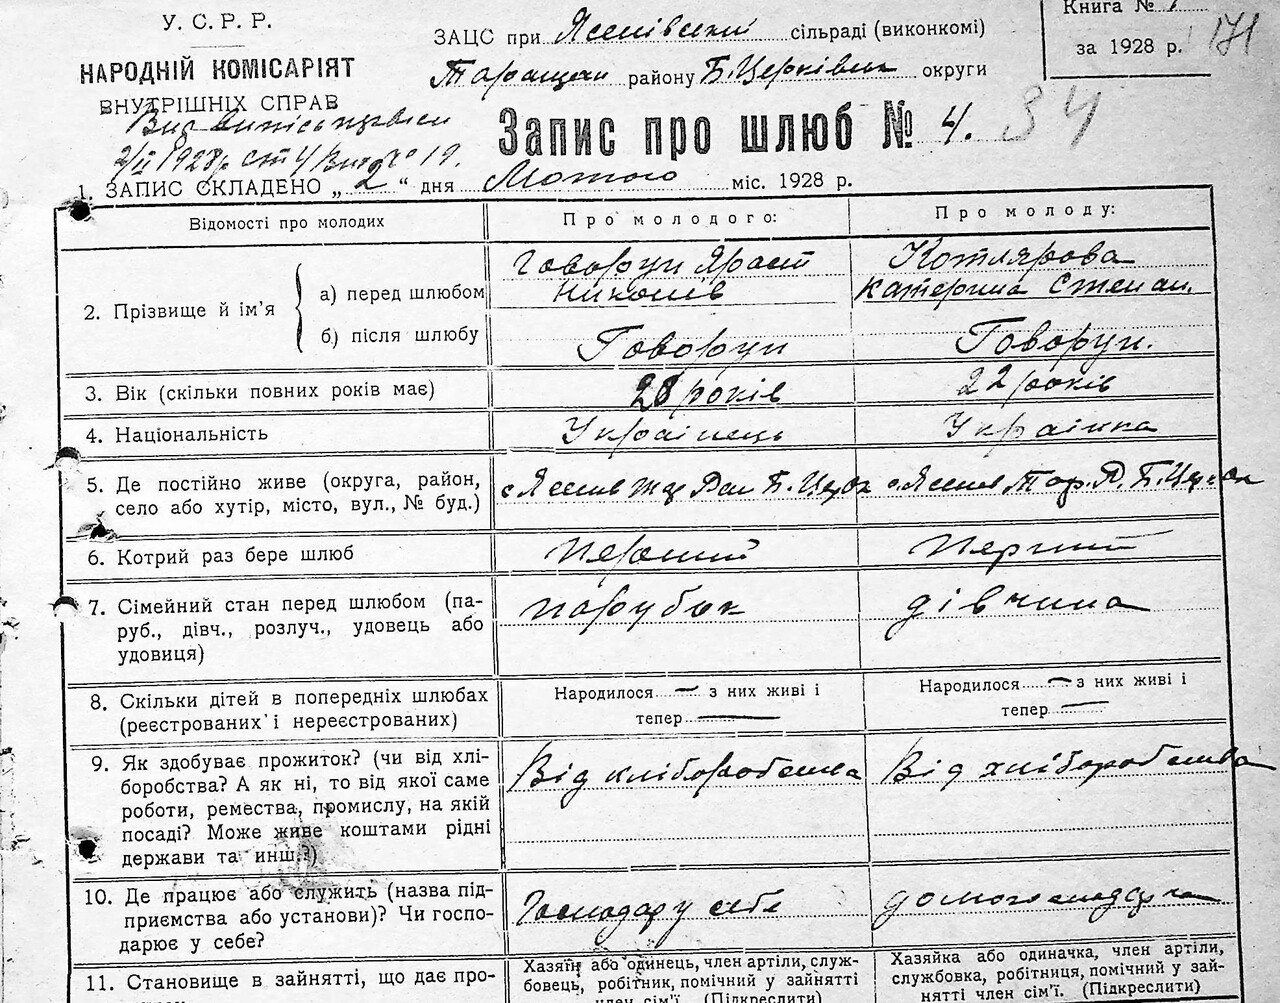 У. С. Р. Р.
НАРОДНІЙ КОМІСАРІЯТ
ВНУТРІШНІХ СПРАВ
ЗАЦС при сільраді (виконкомі)
району Б. Церківськ округи
Книга №
за 1928 р. 171
2/II 1928 р.
Запис про шлюб № 4. 34
1. ЗАПИС СКЛАДЕНО „ 2 “ дня Лютого міс. 1928 р.
Відомості про молодих
Про молодого:
Про молоду:
2. Прізвище й ім'я
а) перед шлюбом
Говорун
Котлярова
Катерина Степан.
б) після шлюбу
Говорун
Говорун.
3. Вік (скільки повних років має)
28 років
22 років
4. Національність
Українець
Українка
5. Де постійно живе (округа, район,
село або хутір, місто, вул., № буд.)
6. Котрий раз бере шлюб
Перший
Перший
7. Сімейний стан перед шлюбом (па-
руб., дівч., розлуч., удовець або
удовиця)
парубок
дівчина
8. Скільки дітей в попередніх шлюбах
(реєстрованих і нереєстрованих)
Народилося — з них живі і
тепер —
Народилося — з них живі і
тепер —
9. Як здобуває прожиток? (чи від хлі-
боробства? А як ні, то від якої саме
роботи, ремества, промислу, на якій
посаді? Може живе коштами рідні
держави та инш.?)
Від хліборобства
Від хліборобства
10. Де працює або служить (назва під-
приємства або установи)? Чи госпо-
дарює у себе?
Господар у себе
домогосподарка
11. Становище в зайнятті, що дає про-
Хазяїн або одинець, член артілі, служ-
бовець, робітник, помічний у зайнятті
член сім'ї. (Підкреслити)
Хазяйка або одиначка, член артіли,
службовка, робітниця, помічний у зай-
нятті член сім'ї. (Підкреслити)